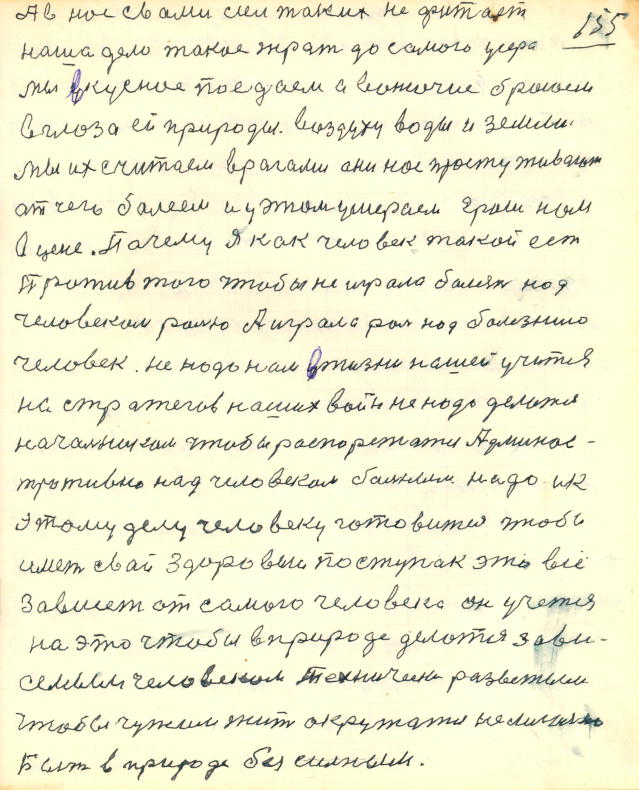 155
Ав нос свами сил таких не фитает
наша дело такое жрат до самого усера
мы вкусное поедаем а воночие бросаем
в глоза ей природы. воздуху воды и земли.
мы их считаем врагами они нос простуживают
от чего балеем и у этом умераем грош нам
в цене. Почему я как человек такой ест
против того чтобы не играла балезн нод
человеком ролю А играла рол нод болезнию
человек. не нодо нам в жизни нашей учится
на стратегов наших войн не нодо делатся
начальником чтобы распоретатся Админис-
тративно над человеком больным. надо и к
этому делу человеку готовится чтобы
имет свай здоровыи поступак это всё
зависет от самого человека он учется
на это чтобы в природе делатся зави-
семым человеком технически разветым
чтобы чужим жит окружатся
Быт в природе без силным.